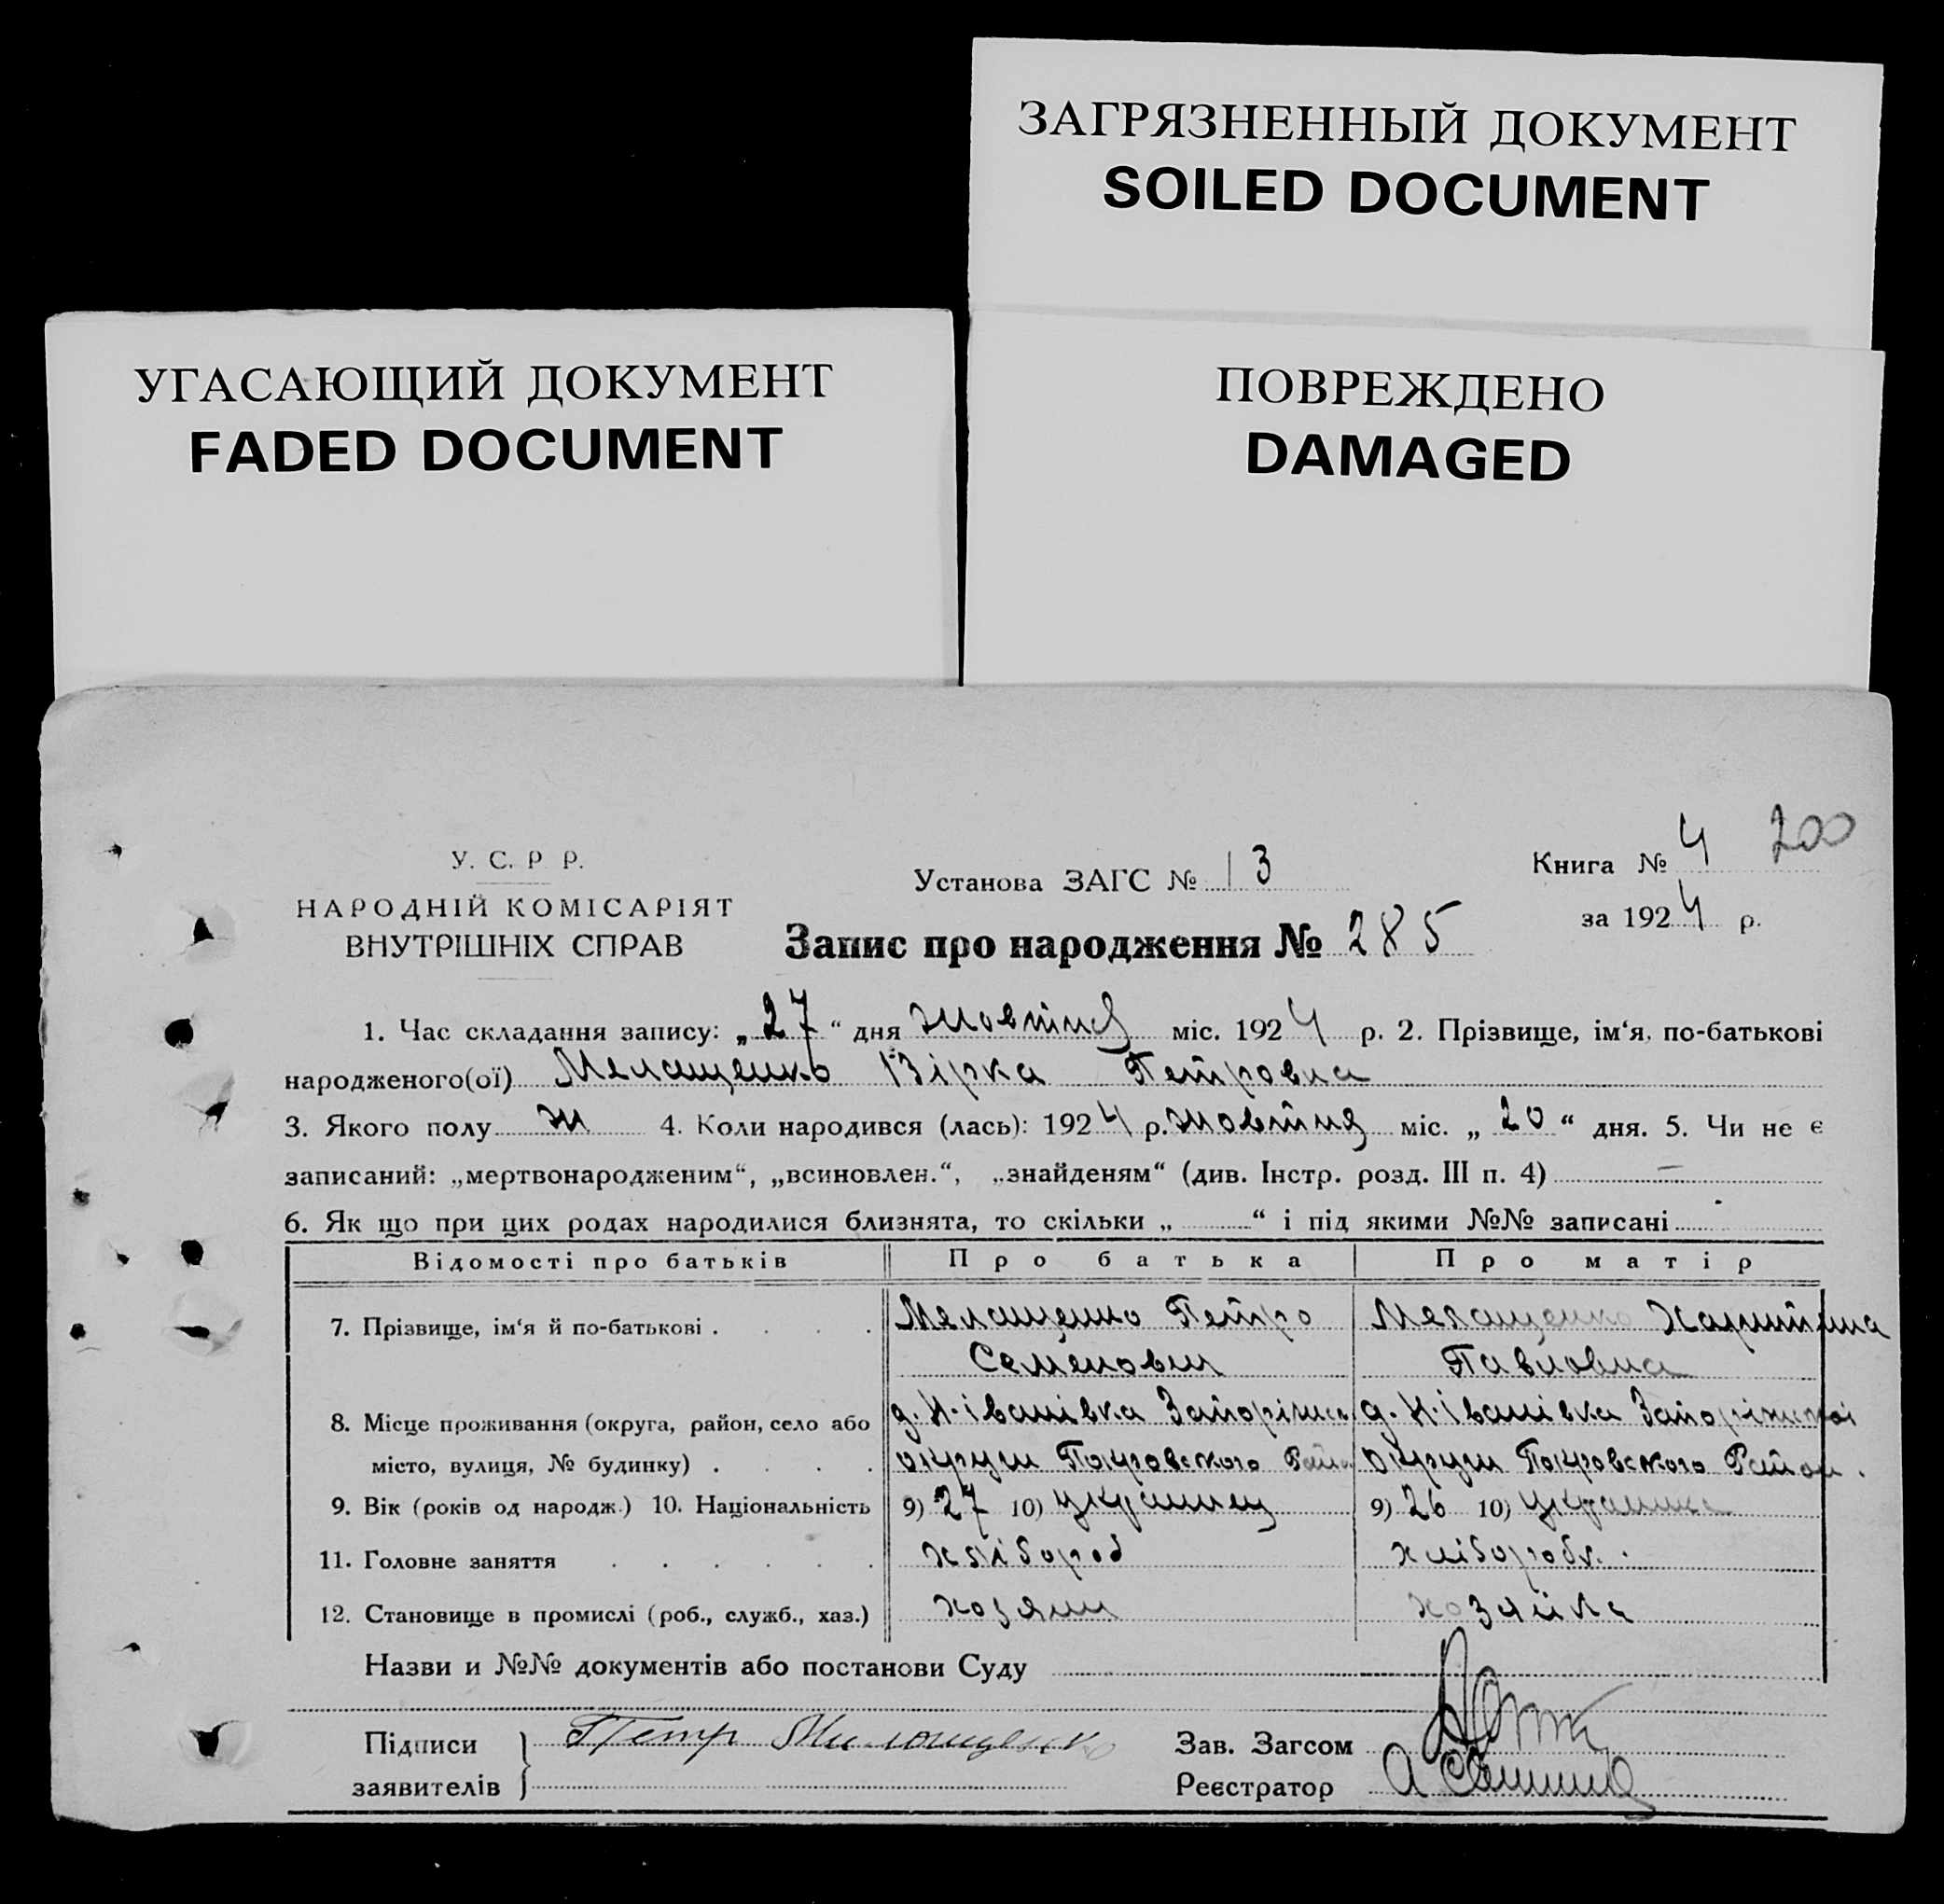 ЗАГРЯЗНЕННЫЙ ДОКУМЕНТ
SOILED DOCUMENT
УГАСАЮЩИЙ ДОКУМЕНТ
FADED DOCUMENT
ПОВРЕЖДЕНО
DAMAGED
200
У. С. Р Р.
НАРОДНІЙ КОМІСАРІЯТ
ВНУТРІШНІХ СПРАВ
Установа ЗАГС № 13
Книга № 4
за 1924 р.
Запис про народження № 285
1. Час складання запису: „27“ дня жовтня міс. 1924 р. 2. Прізвище, ім‘я, по-батькові
народженого(ої) Мелащенко Зірка Петровна
3. Якого полу ж 4. Коли народився (лась): 1924 р. жовтня міс. „20“ дня. 5. Чи не є
записаний: „мертвонародженим“, „всиновлен.“, „знайденям“ (див. Інстр. розд. III п. 4) —
6. Як що при цих родах народилися близнята, то скільки „ “ і під якими №№ записані
Відомості про батьків Про батька Про матір
7. Прізвище, ім‘я й по-батькові . . . . Мелащенко Петро Мелащенко Харитина
Семенович Павловна
8. Місце проживання (округа, район, село або д. Н-Іванівка Запоріжск д. Н-Іванівка Запоріжскої
місто, вулиця, № будинку) . . . . округи Покровского Район округи Покровского Район.
9. Вік (років од народж.) 10. Національність 9) 27 10) украинец 9) 26 10) украинка
11. Головне заняття . . . . . . хлібороб хліборобк.
12. Становище в промислі (роб., служб., хаз.) хозяин хозяйка
Назви и №№ документів або постанови Суду
Підписи Петр Мелащенко Зав. Загсом
заявителів Реєстратор